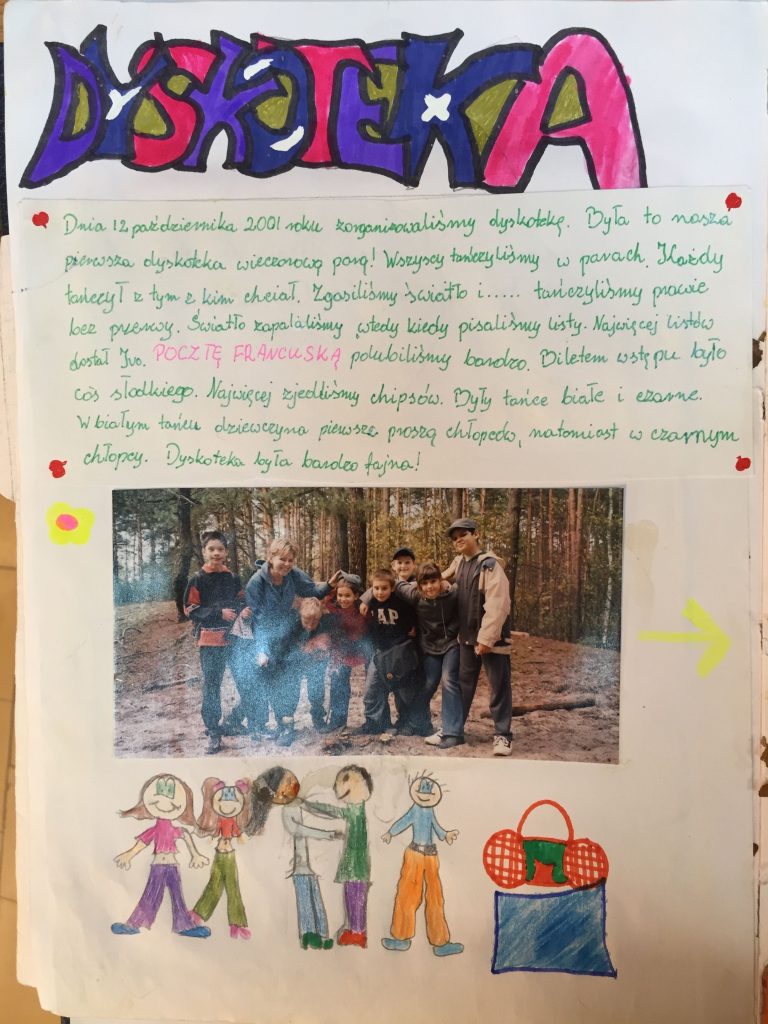 DYSKOTEKA
Dnia 12 października 2001 roku zorganizowaliśmy dyskotekę. Była to nasza
pierwsza dyskoteka wieczorową porą! Wszyscy tańczyliśmy w parach. Każdy
tańczył z tym z kim chciał. Zgasiliśmy światło i..... tańczyliśmy prawie
bez przerwy. Światło zapalaliśmy wtedy kiedy pisaliśmy listy. Najwięcej listów
dostał Ivo. POCZTĘ FRANCUSKĄ polubiliśmy bardzo. Biletem wstępu było
coś słodkiego. Najwięcej zjedliśmy chipsów. Były tańce białe i czarne.
W białym tańcu dziewczyna pierwsze proszą chłopców, natomiast w czarnym
chłopcy. Dyskoteka była bardzo fajna!
AP